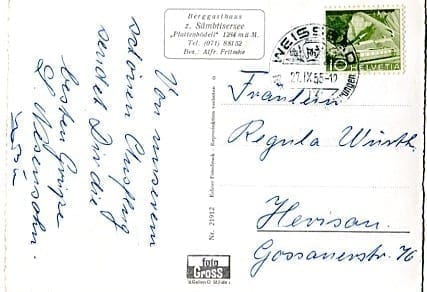 Berggasthaus
z. Sämbtisersee
„Plattenbödeli" 1284 m ü. M.
Tel. (071) 88152
Bes.: Alfr. Fritsche
Von unserem
schönen Ausflug
sendet Dir die
besten Grüsse
WEISSBAD
27.IX.55-12
HELVETIA
10
Fräulein
Regula Wirth.
Herisau.
Gossauerstr. 76
Echter Fotodruck - Reproduktion verboten
Nr. 21912
foto
Gross
St.Gallen